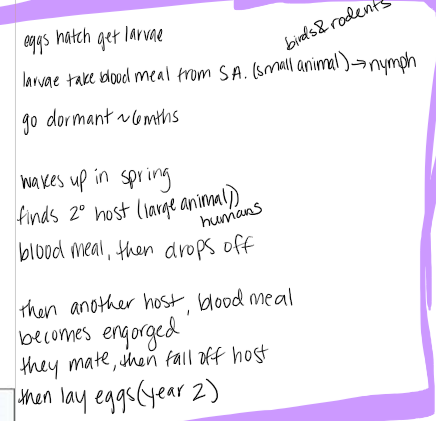 eggs hatch get larvae
birds & rodents
larvae take blood meal from S.A. (small animal) → nymph
go dormant ~ 6 mths
wakes up in spring
finds 2° host (large animal))
humans
blood meal, then drops off
then another host, blood meal
becomes engorged
they mate, then fall off host
then lay eggs (year 2)